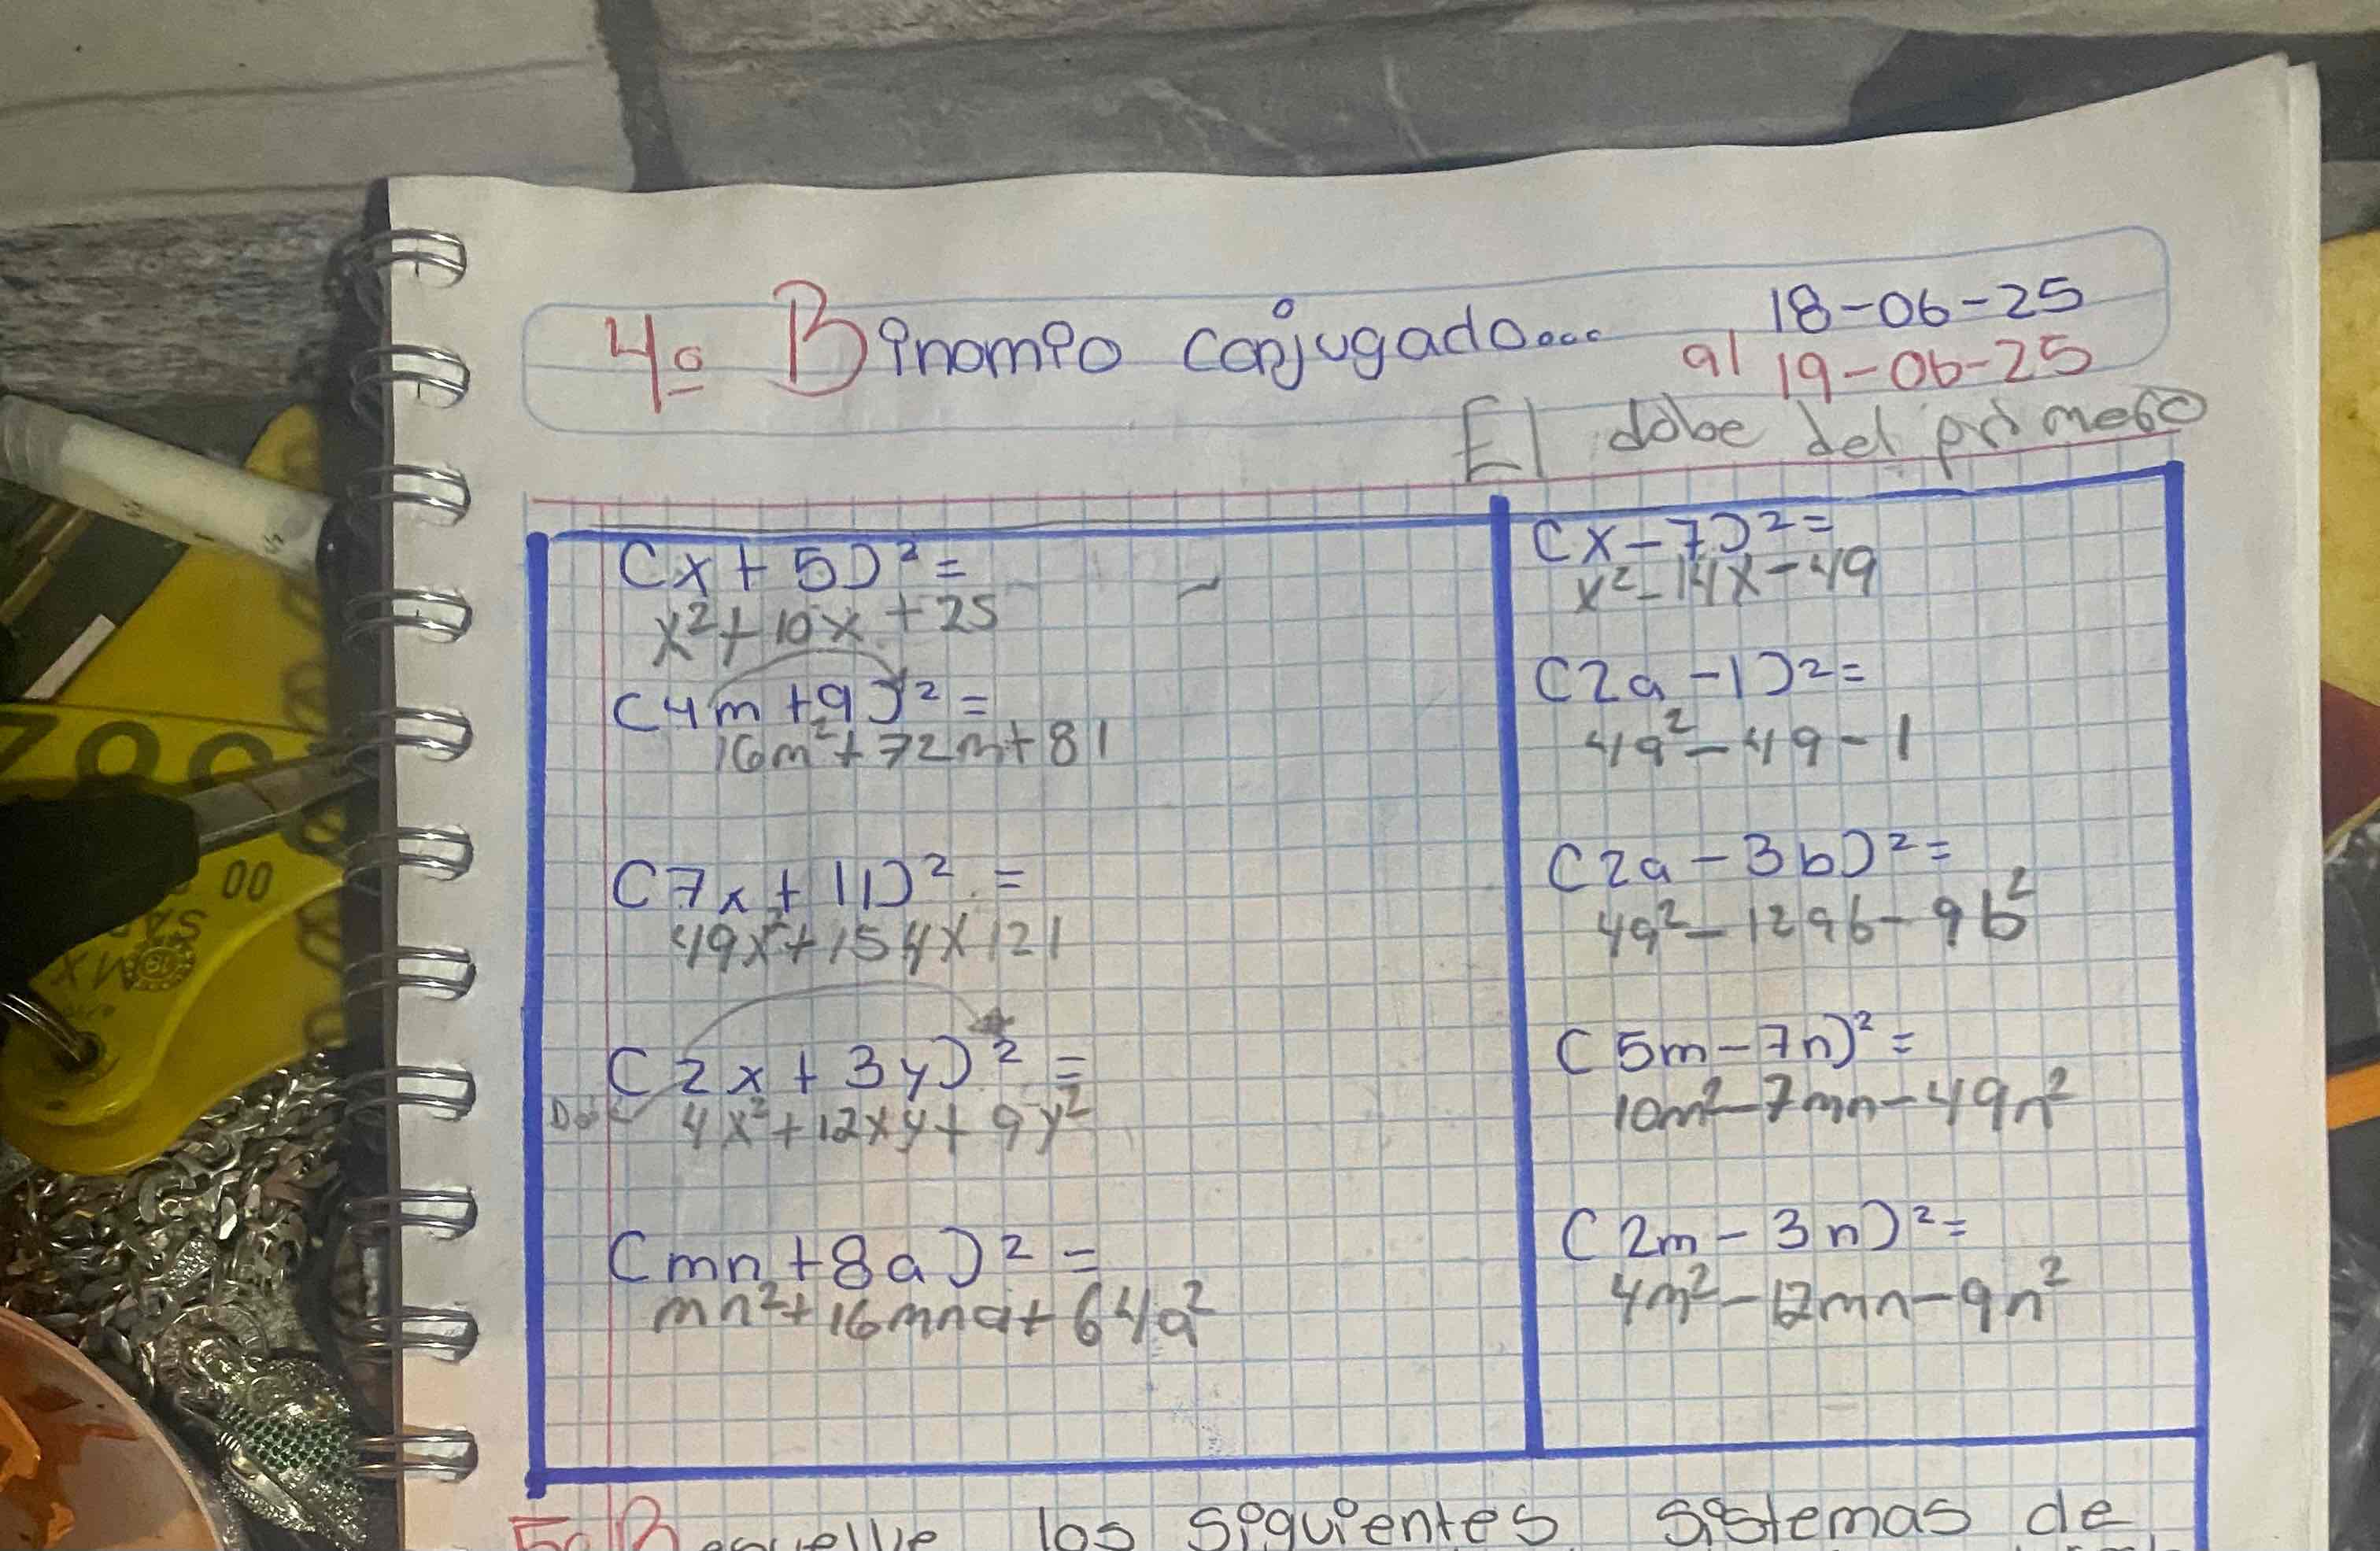 4º Binomio conjugado... 18-06-25
al 19-06-25
El dobe del primero
(x+5)²=
x²+10x+25
(4m+9)²=
16m²+72m+81
(7x+11)²=
49x²+154x121
(2x+3y)²=
4x²+12xy+9y²
(mn+8a)²=
mn²+16mna+64a²
(x-7)²=
x²-14x-49
(2a-1)²=
4a²-4a-1
(2a-3b)²=
4a²-12ab-9b²
(5m-7n)²=
10m²-7mn-49n²
(2m-3n)²=
4m²-12mn-9n²
5º Resuelve los siguientes sistemas de
00
MX